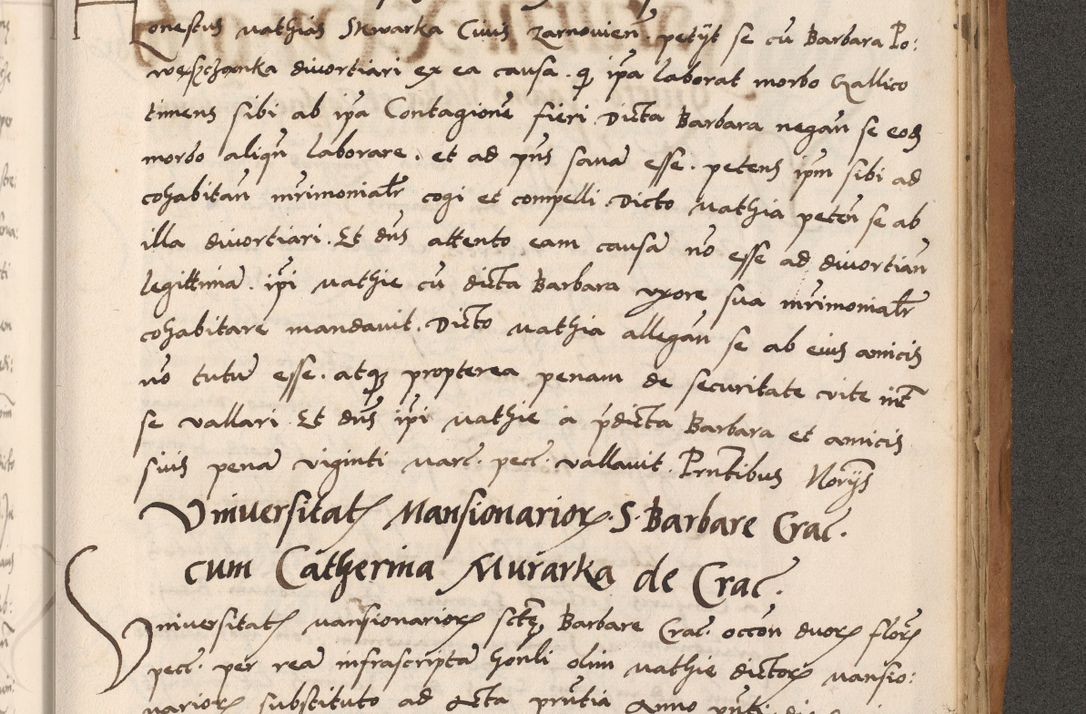 onestus Mathias Skwarka Civis Zarnovien. petijt se cū Barbara Po:
divortiari ex ea causa. q ipa laborat morbo Gallico
timens sibi ab ipa Contagione fieri. Dicta Barbara negan se eod
morbo aliqn laborare. et ad pns sana esse. petens ipm sibi ad
cohabitan mrimonialr cogi et compelli. Dicto Mathia peten se ab
illa divortiari. Et dns attento eam causa no esse ad divortian
legittima. ipi Mathie cū dicta Barbara uxore sua mrimonialr
cohabitare mandavit. Dicto Mathia allegan se ab eius amicis
no tutu esse. atq propterea penam de securitate vite int
se vallari Et dns ipi Mathie a pdicta Barbara et amicis
suis pena viginti marc. pec. vallavit. Prntibus Norijs
Universitat Mansionarior. S. Barbare Crac.
cum Catherina Murarka de Crac.
Universitat mansionarior scte Barbare Crac. occon duor flor
pec. per rea infrascripta honli olim Mathie dictor mansio:
narior substituto ad Acta Anno